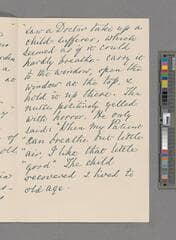 saw a Doctor take up a
child-sufferer, which
seemed as if it could
hardly breathe - carry it
to the window, open the
window at the top, &
hold it up there. The
nurse positively yelled
with horror. He only
said: When my Patient
can breathe but little
air, I like that little
good". The child
recovered & lived to
old age.